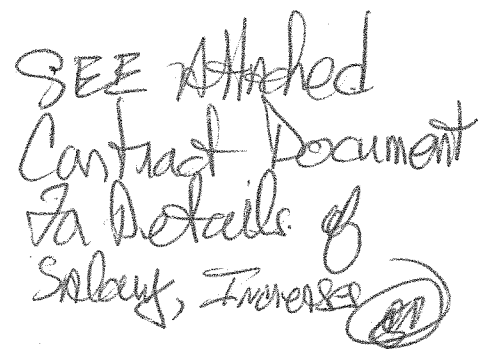 SEE Attached
Contract Document
For Details of
Salary, Increases